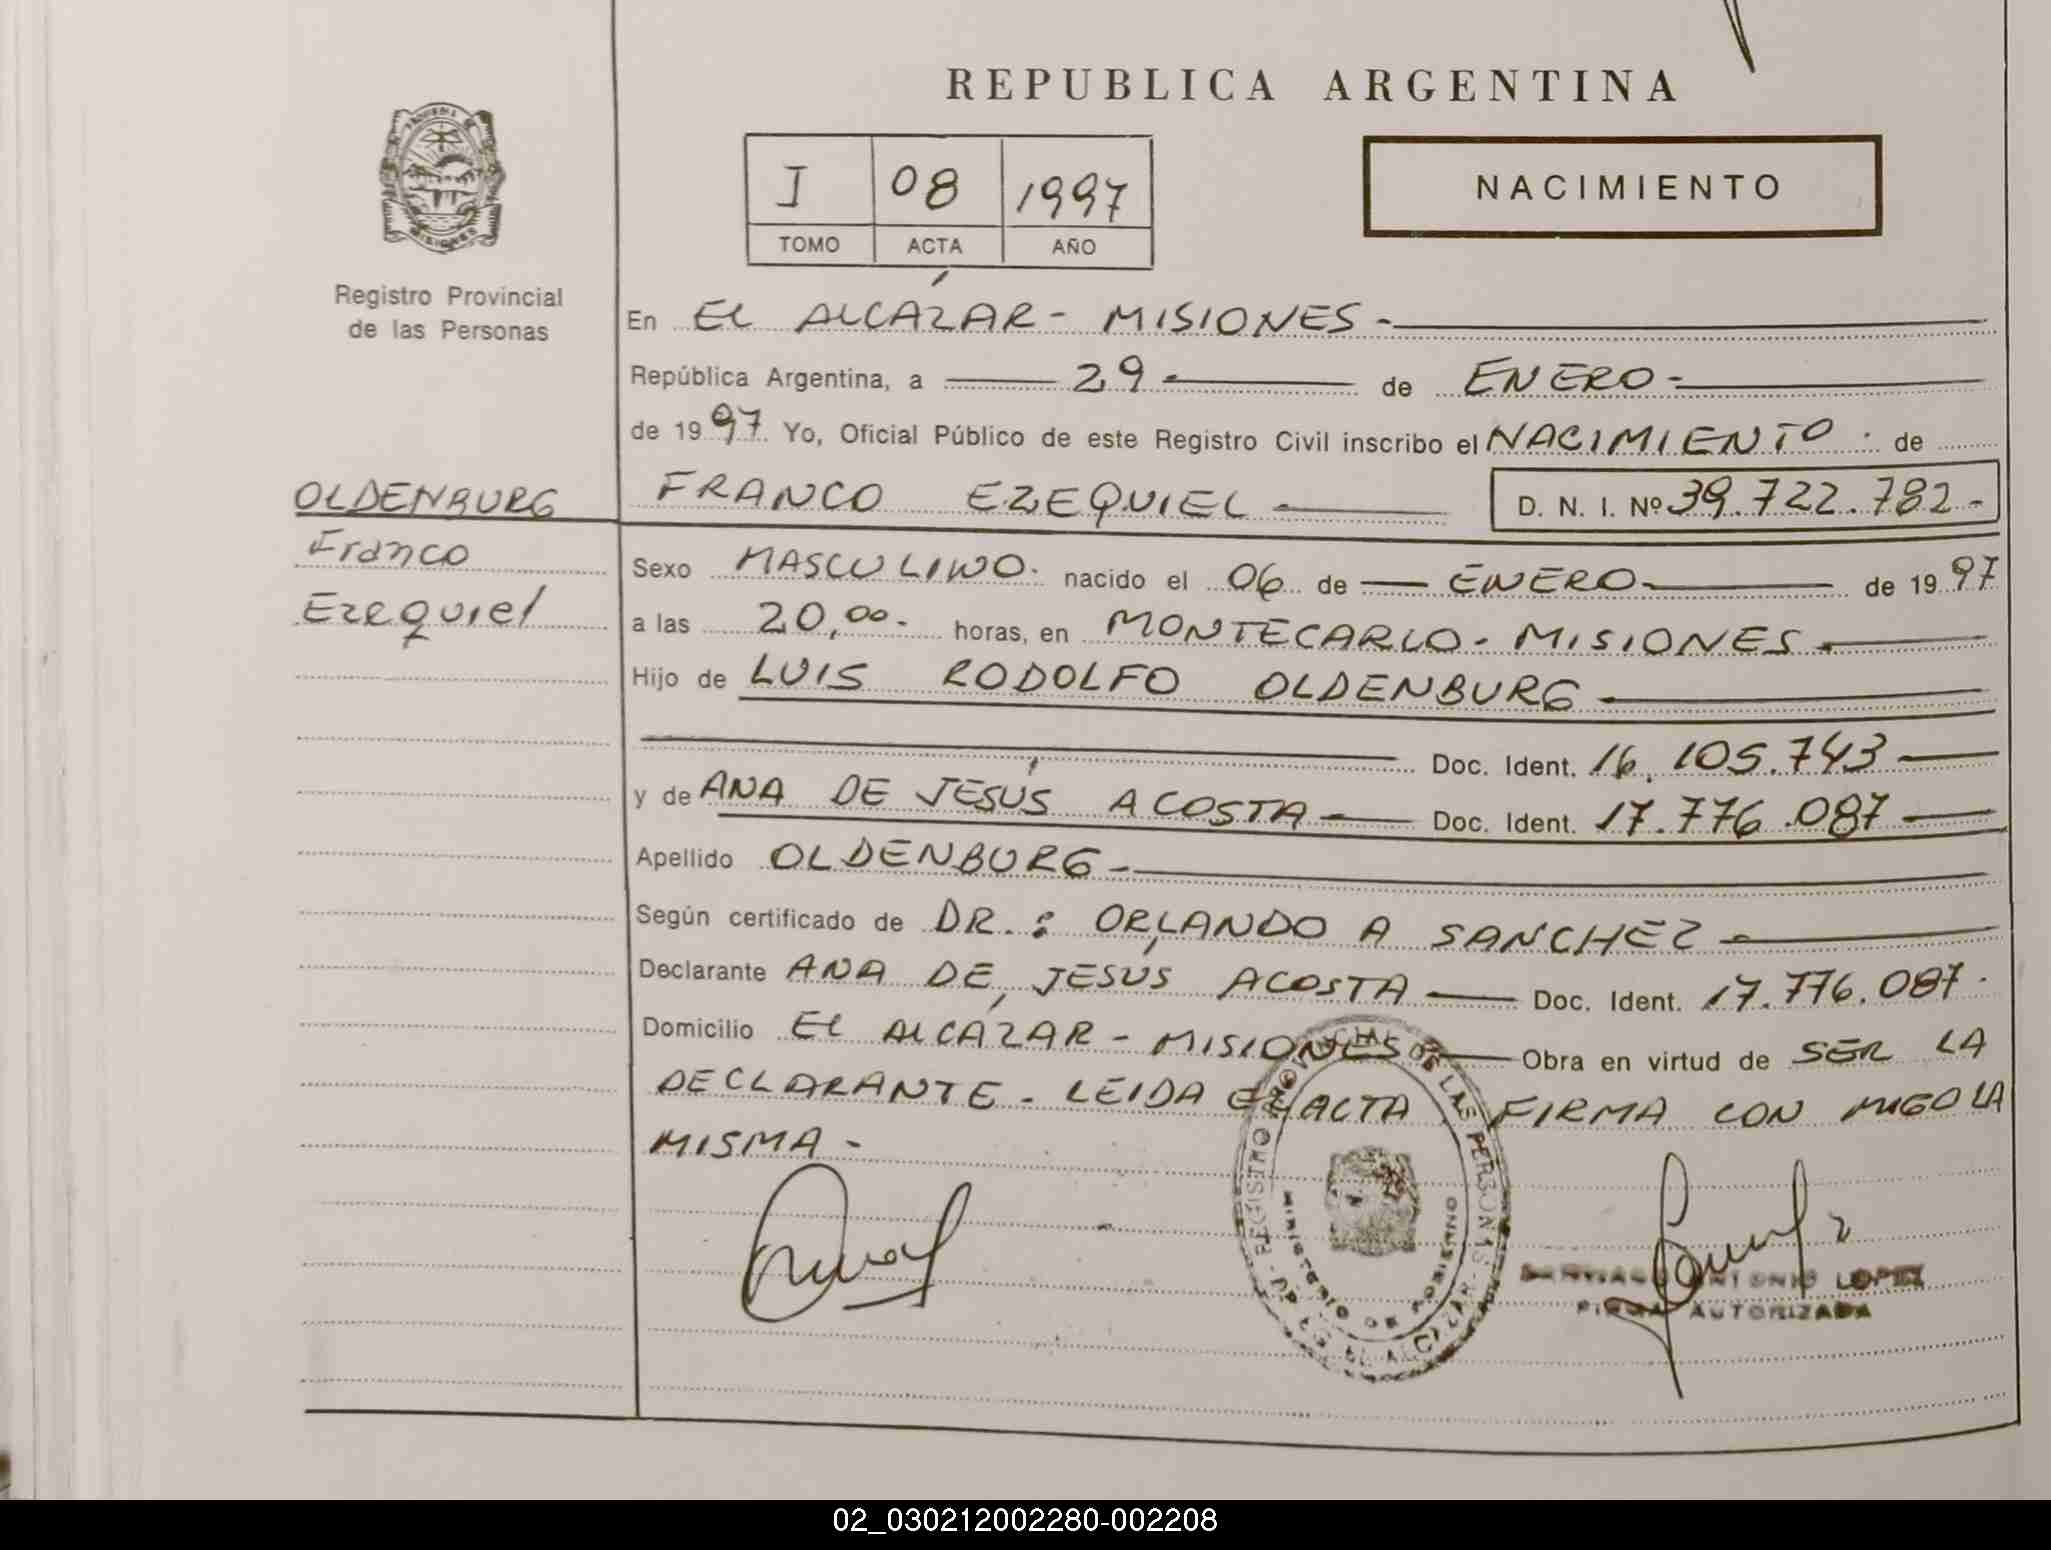 REPUBLICA ARGENTINA
I 08 1997
TOMO ACTA AÑO
NACIMIENTO
MISIONES
Registro Provincial
de las Personas
OLDENBURG
Franco
Ezequiel
En EL ALCAZAR - MISIONES -
República Argentina, a 29 - de ENERO -
de 1997 Yo, Oficial Público de este Registro Civil inscribo el NACIMIENTO . de
FRANCO EZEQUIEL D. N. I. Nº 39.722.782 -
Sexo MASCULINO. nacido el 06 de ENERO - de 1997
a las 20,00 - horas, en MONTECARLO - MISIONES -
Hijo de LUIS RODOLFO OLDENBURG -
Doc. Ident. 16.105.743
y de ANA DE JESÚS ACOSTA Doc. Ident. 17.776.087
Apellido OLDENBURG -
Según certificado de DR. : ORLANDO A SANCHEZ -
Declarante ANA DE JESÚS ACOSTA Doc. Ident. 17.776.087.
Domicilio EL ALCÁZAR - MISIONES Obra en virtud de SER LA
DECLARANTE - LEIDA EL ACTA FIRMA CON MIGO LA
MISMA -
REGISTRO PROVINCIAL DE LAS PERSONAS
MINISTERIO DE GOBIERNO
EL ALCAZAR
SANTIAGO ANTONIO LOPEZ
FIRMA AUTORIZADA
02_030212002280-002208